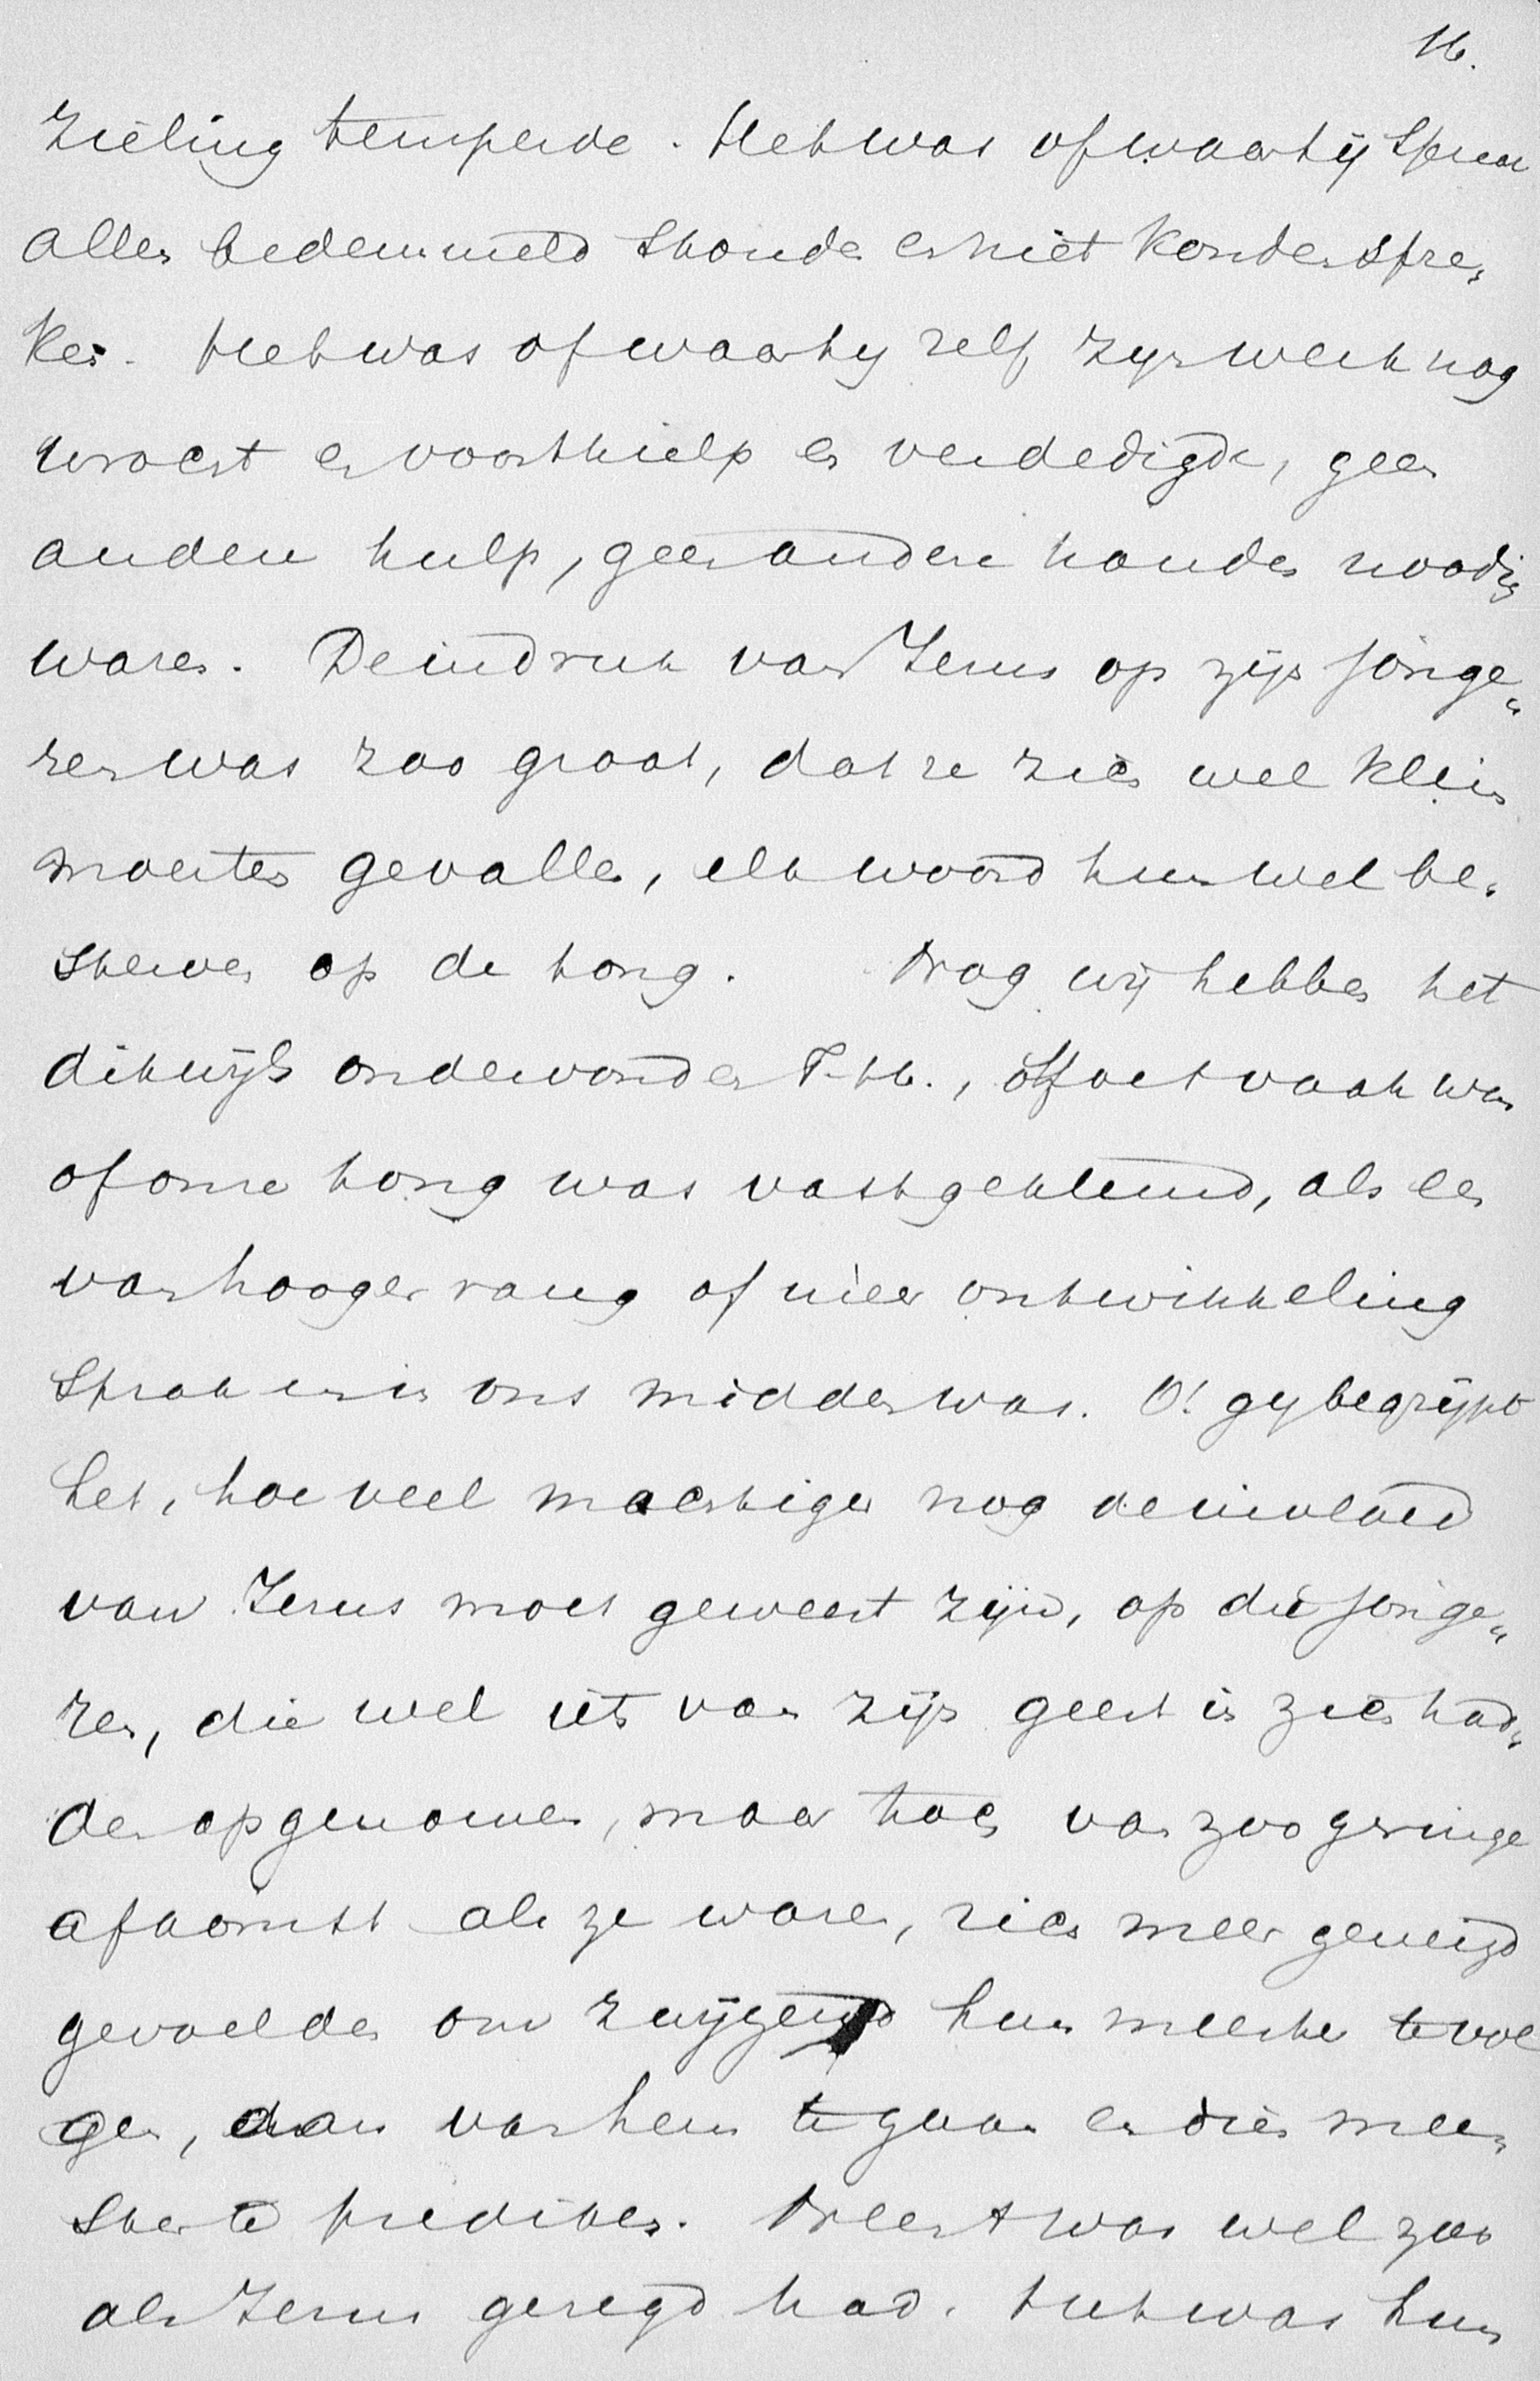 16.
zieling temperde. Het was of waar hij sprak
alles bedremmeld stond en niet konden spre„
ken. Het was of waar hij zelf zijn werk nog
voorthielp en verdedigde, geen
andere hulp, geen andere handen noodig
waren. De indruk van Jezus op zijn jonge„
ren was zoo groot, dat ze zich wel klein
moesten gevallen, elk woord hun wel be„
sterven op de tong. Nog wij hebben het
dikwijls ondervonden T. H., hoe vaak was
of onze tong was vastgeklemd, als een
van hooger rang of meer ontwikkeling
sprak en in ons midden was. O! gij begrijpt
het, hoe veel machtiger nog de invloed
van Jezus moet geweest zijn, op die jonge„
ren, die wel iets van zijn geest in zich had„
den opgenomen, maar toch van zoo geringe
afkomst als ze waren, zich meer geneigd
gevoelden om zwijgend hun meester te vol
gen, dan van hem te gaan en dien mee„
ster te prediken. Meest was wel zoo
als Jezus gezegd had. Het was hun